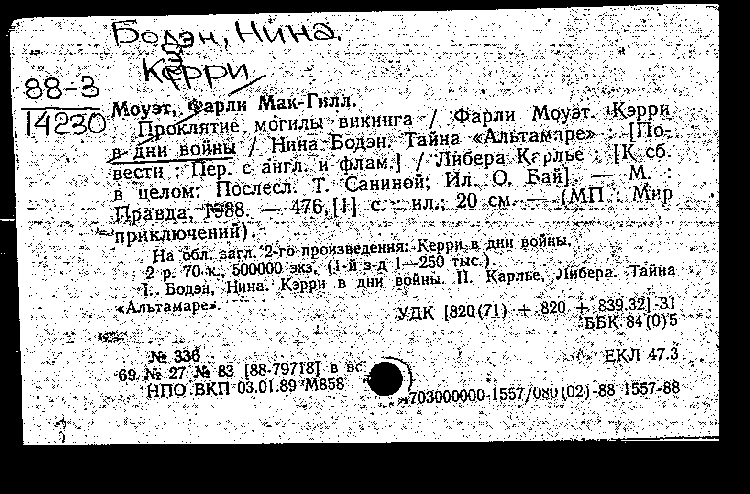 Бодэн, Нина.
Керри
88-3
14230
Моуэт, Фарли Мак-Гилл.
Проклятие могилы викинга / Фарли Моуэт. Кэрри
в дни войны / Нина Бодэн. Тайна «Альтамаре» : [По-
вести : Пер. с англ. и флам.] / Либера Карлье : [К сб.
в целом: Послесл. Т. Саниной; Ил. О. Бай]. — М. :
Правда, 1988. — 476,[1] с. : ил.; 20 см. — (МП : Мир
приключений)
На обл. загл. 2-го произведения: Керри в дни войны.
2 р. 70 к., 500000 экз. (1-й з-д 1—250 тыс.)
I. Бодэн, Нина. Кэрри в дни войны. II. Карлье, Либера. Тайна
«Альтамаре».
УДК [820(71) + 820 + 839.32]-31
ББК 84(0)5
№ 336
69 № 27 № 83 [88-79718] в вс
ЕКЛ 47.3
НПО ВКП 03.01.89 М858
4703000000-1557/080(02)-88 1557-88